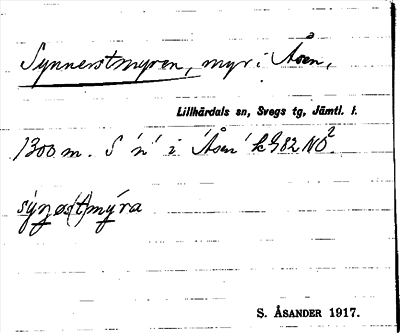 Synnerstmyren, myr i Åsen,
Lillhärdals sn, Svegs tg, Jämtl. l.
1300 m. S 'n' i 'Åsen' k982 NO².
sýnøs(t)mýra
S. ÅSANDER 1917.